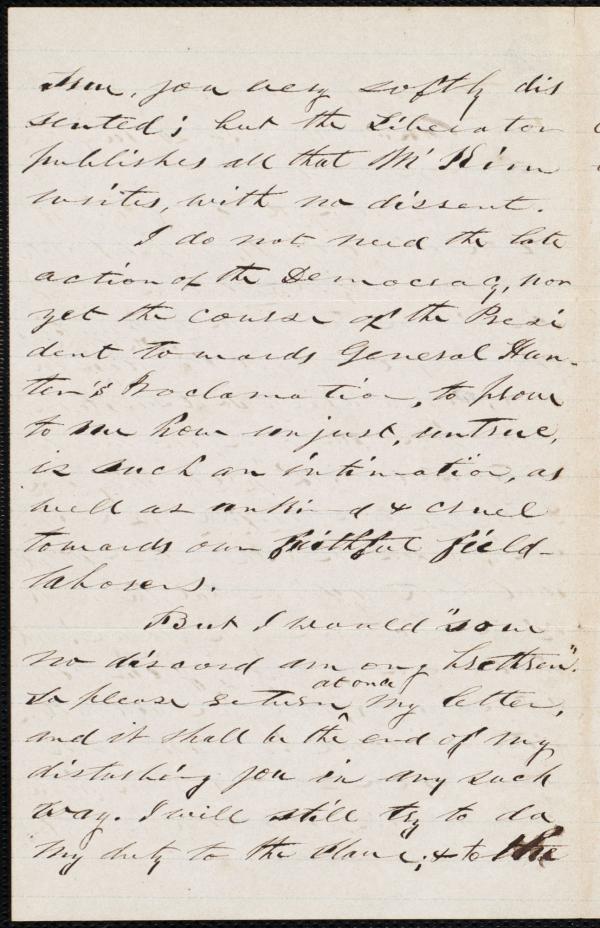 him, you very softly dis
sented; but the Liberator
publishes all that Mc Kim
writes, with no dissent.
I do not need the late
action of the Democracy, nor
yet the course of the Presi
dent towards General Hun-
ter's Proclamation, to prove
to me how unjust, untrue,
is such an intimation, as
well as unkind & cruel
towards our faithful field-
laborers.
But I would "sow
no discord among brethren".
So please return at once my letter,
and it shall be the end of my
disturbing you in any such
way. I will still try to do
my duty to the slave; & to the